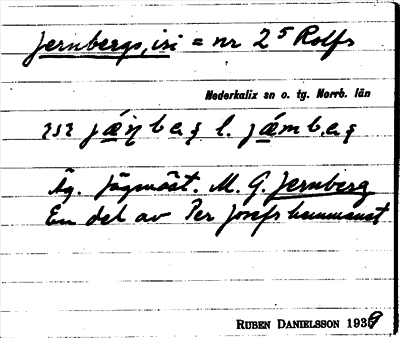 Jernbergs, isi = nr 2⁵ Rolfs
Nederkalix sn o. tg. Norrb. län
Äg. Jägmäst. M. G. Jernberg
En del av Per Josefs hemmanet
RUBEN DANIELSSON 1939